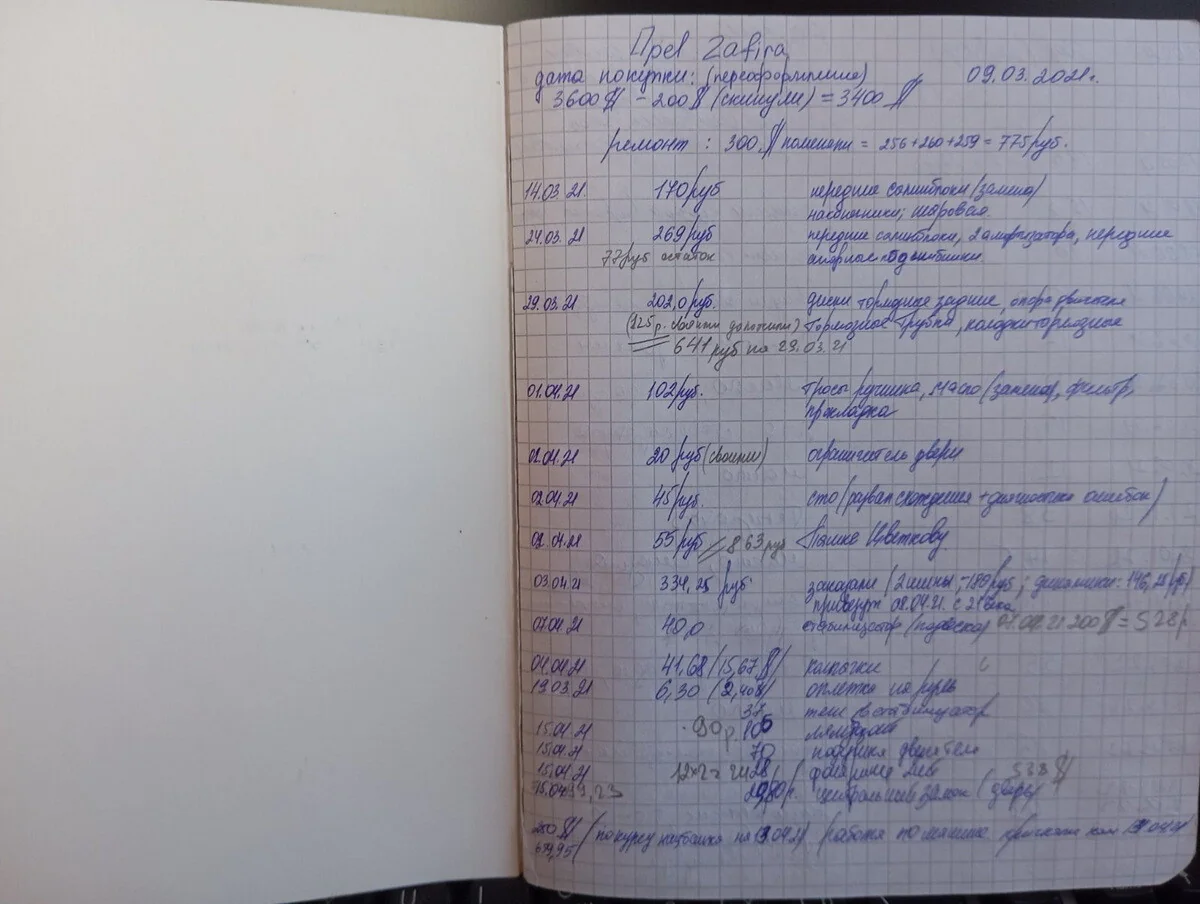 Opel Zafira
дата покупки: (переоформление) 09.03.2021г.
3600$ - 200$ (скинули) = 3400$
ремонт : 300$ поменяли = 256+260+259 = 775 руб.
14.03.21 170 руб передние сайлентблоки (замена)
наконечники, шаровая.
24.03.21 269 руб передние сайлентблоки, 2 амортизатора, передние
77 руб остаток опорные подшипники.
29.03.21 202,0 руб. диски тормозные задние, опора двигателя
(125 р. своими доложили) тормозные трубки, колодки тормозные
641 руб на 29.03.21
01.04.21 102 руб. тросы ручника, масло (замена), фильтр,
прокладка
02.04.21 20 руб (своими) ограничитель двери
02.04.21 45 руб. сто (развал схождения + диагностика ошибок)
02.04.21 55 руб // 863 руб Пашке Цветкову
03.04.21 334,25 руб заказали (2 шины - 189 руб; 146,25 руб)
привезут 08.04.21 с 21 века
07.04.21 40,0 стабилизатор 07.04.21 200$ = 528 р
04.04.21 41,68 (15,67$) колпачки
19.03.21 6,30 (2,40$) оплетка на руль
37 стабилизатор
15.04.21 90 р. 106
15.04.21 70 подушка двигателя
15.04.21 12*2=24 28 538$
15.04 29,80 р. центральный замок (дверь)
250$ (по курсу на 04.21) работа по машине
659,95